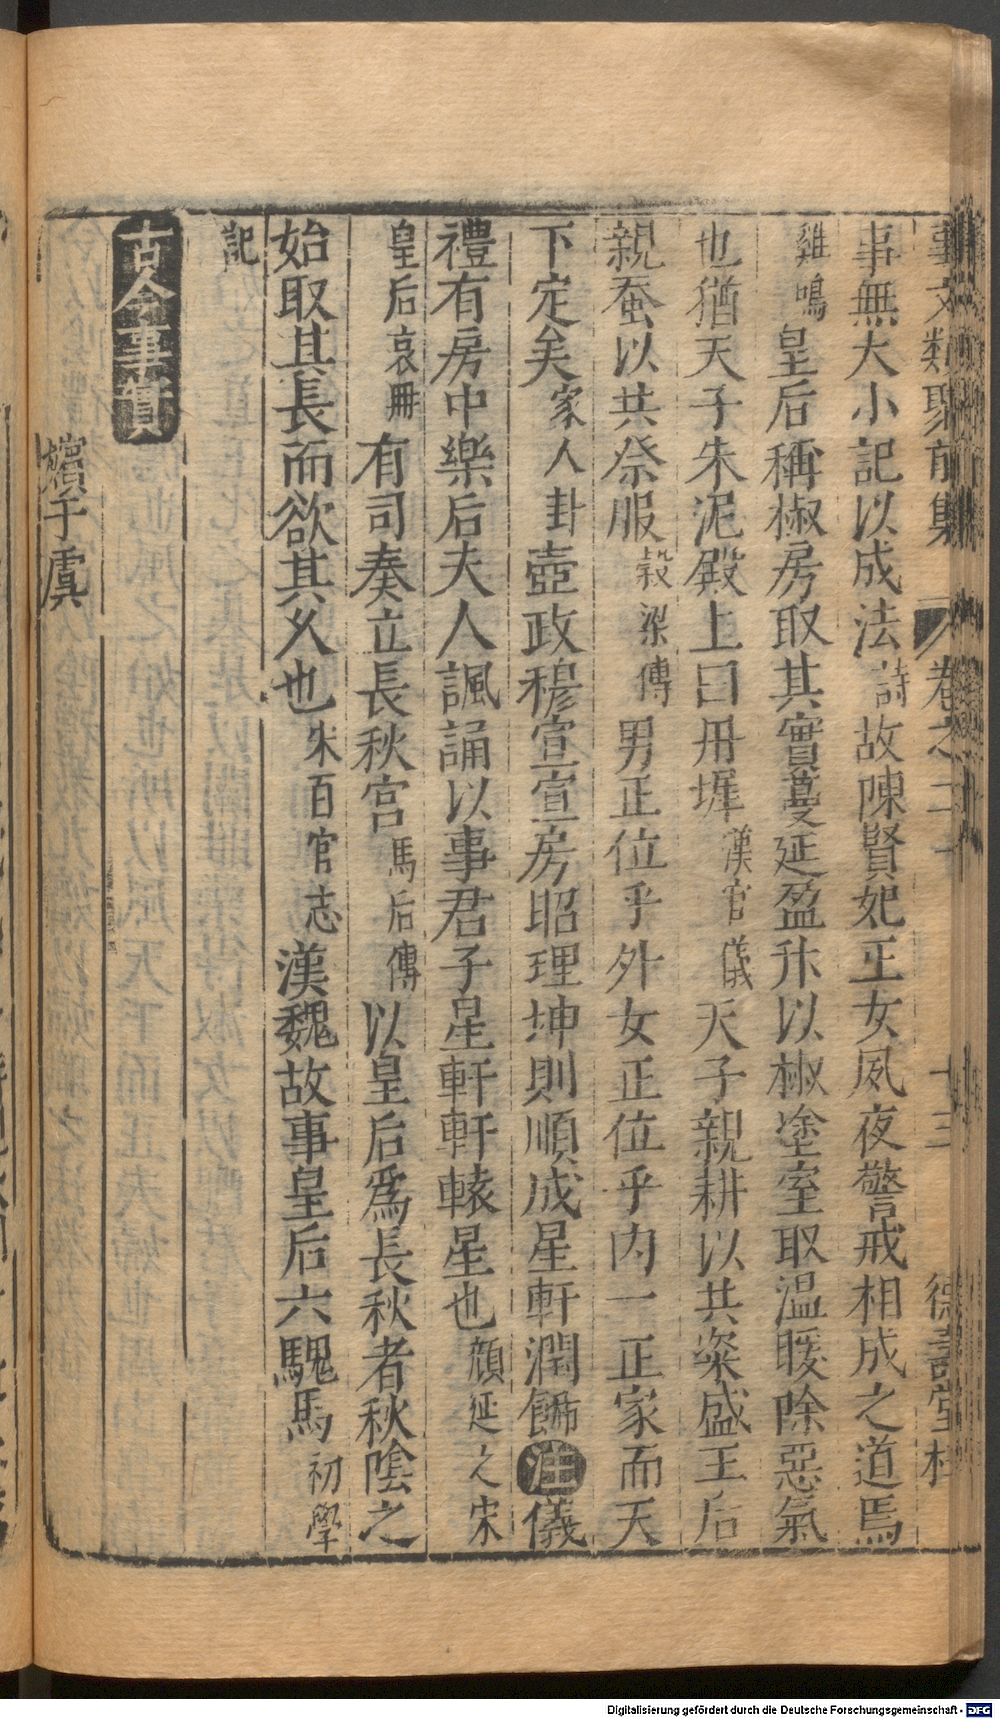 事文類聚前集 卷之二十 十三 德壽堂梓
事無大小記以成法詩故陳賢妃正女夙夜警戒相成之道焉
雞鳴皇后稱椒房取其實蔓延盈升以椒塗室取温暖除惡氣
也猶天子朱泥殿上曰丹墀漢官儀天子親耕以共粢盛王后
親蚕以共祭服穀梁傳男正位乎外女正位乎内一正家而天
下定矣家人卦壼政穆宣宣房昭理坤則順成星軒潤飾注儀
禮有房中樂后夫人諷誦以事君子星軒軒轅星也顔延之宋
皇后哀冊有司奏立長秋宫馬后傳以皇后爲長秋者秋陰之
始取其長而欲其久也朱百官志漢魏故事皇后六騩馬初學
記
古今事實
嬪于虞
Digitalisierung gefördert durch die Deutsche Forschungsgemeinschaft - DFG